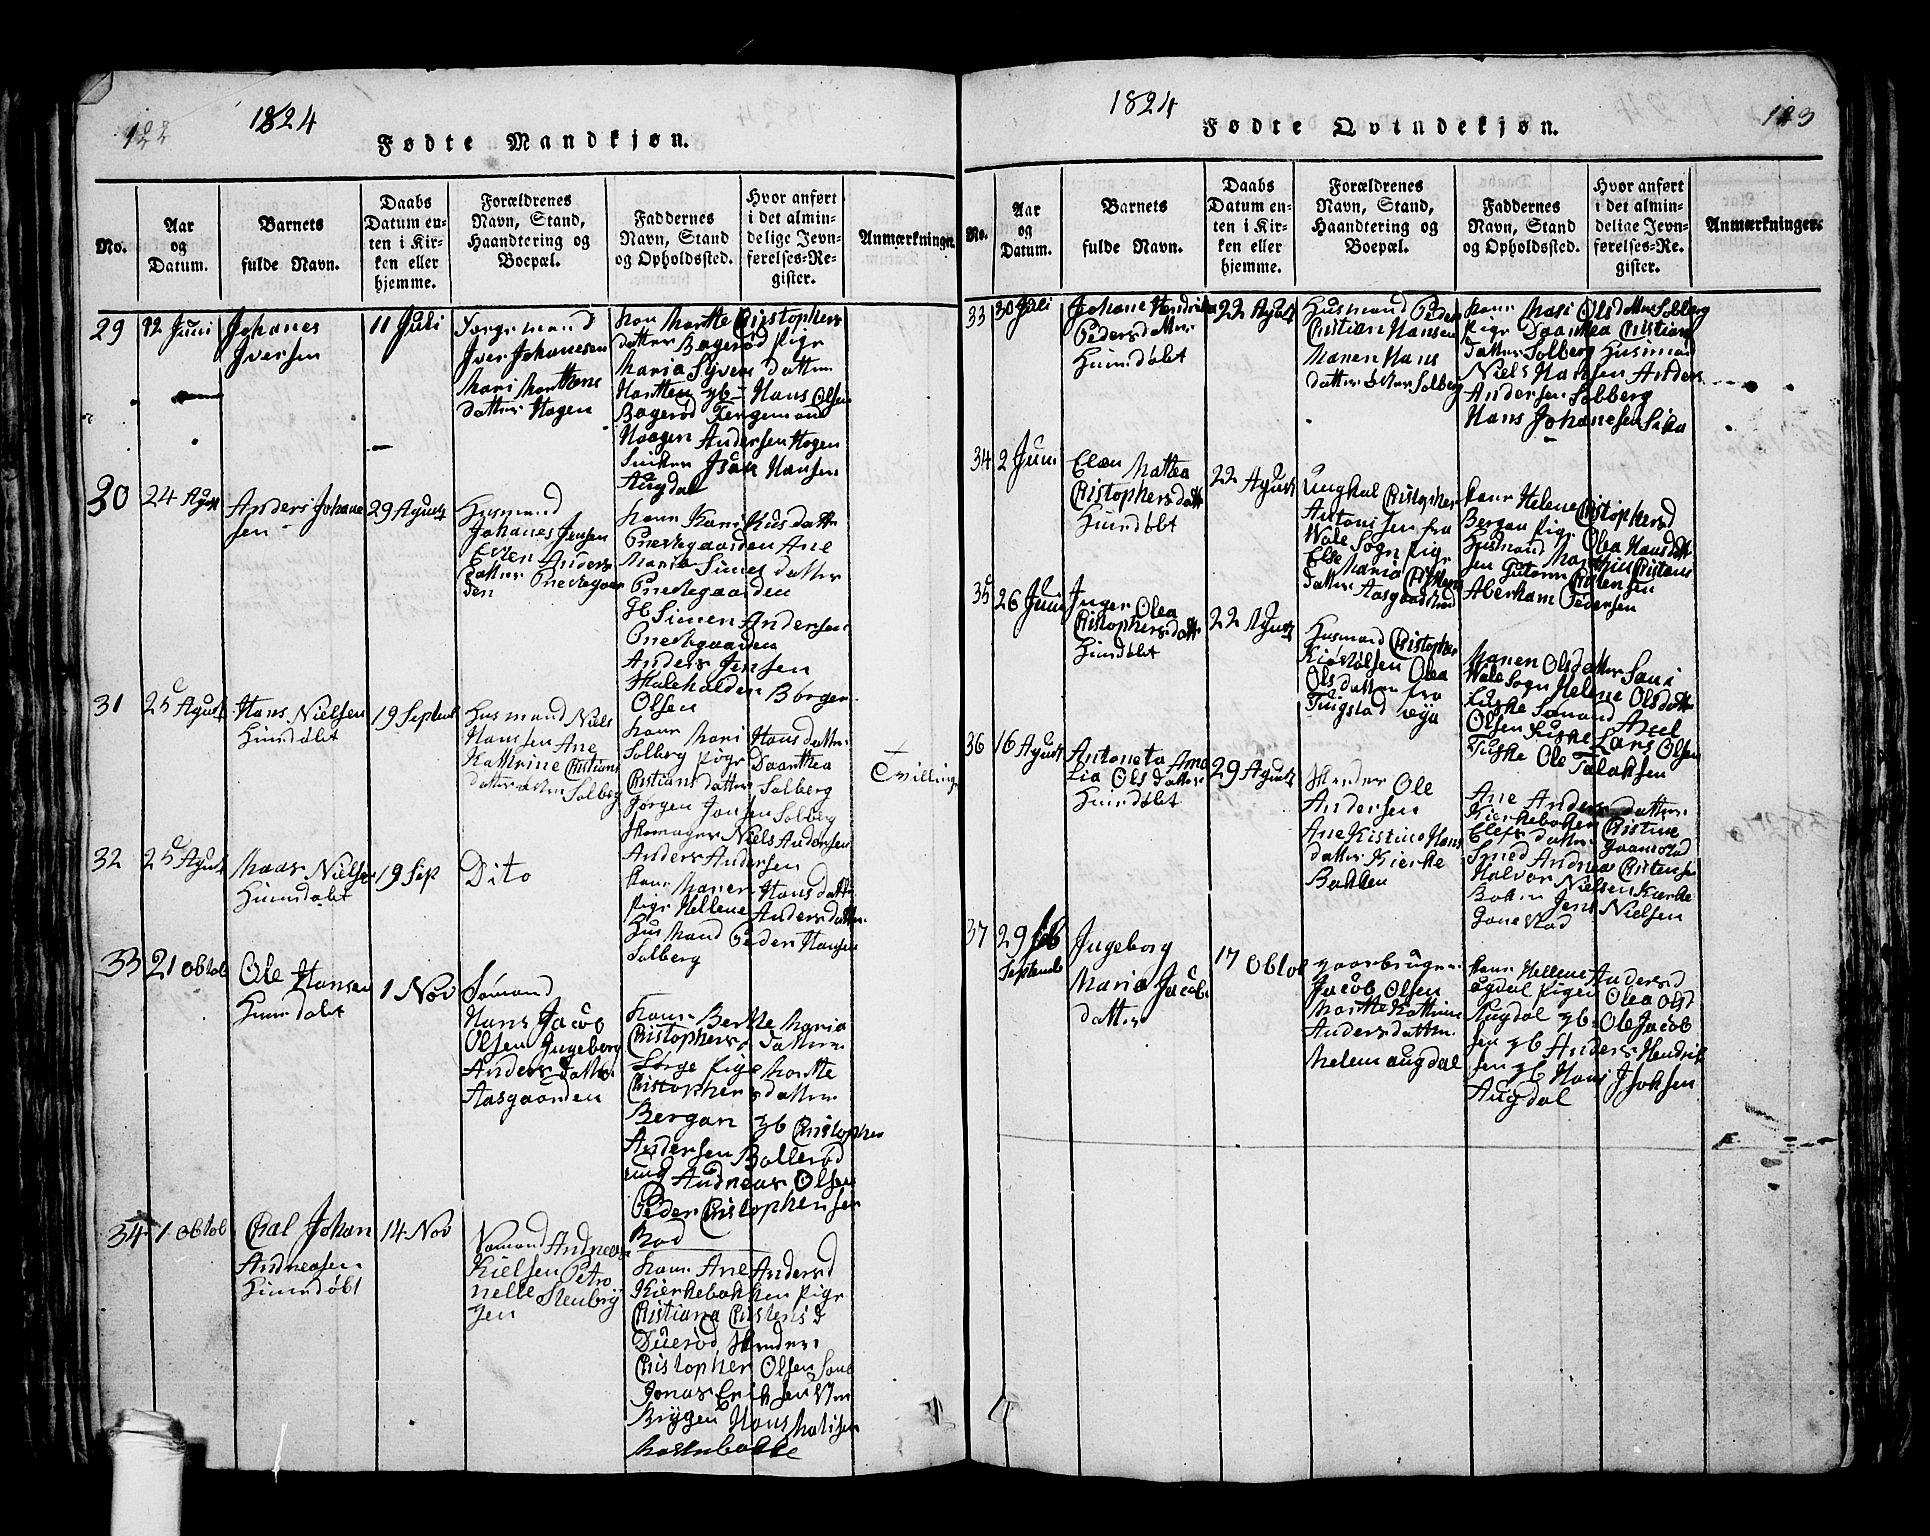 122
1824
Fødte Mandkjøn.
No.
Aar
og
Datum.
Barnets
fulde Navn.
Daabs
Datum en-
ten i Kir-
ken eller
hjemme.
Forældrenes
Navn, Stand,
Haandtering og
Boepæl.
Faddernes
Navn, Stand
og Opholdssted.
Hvor anført
i det almin-
delige Jevn-
førelses-Re-
gister.
Anmærkninger.
29
12 Juni
Johanes
Iversen
11 Juli
Iver Johanesen
Mari Morttens
datter Hagen
kone Mortte Cristophers
datter Bagerød pige
Maria Syvers datter
Hans Olsen
Bagerød Fergemand
Haagen Andersen Hogen
Isak Hansen
Augdal
30
24 Agust
Anders Johane
sen
29 Agust
Husmand
Johanes Jensen
Anders
datter Prestegaar
den
kone Kari
Prestegaarden Ane
Maria Simens datter
Prestegaarden
Simen Andersen
Prestegaarden
Anders Jensen
Børger
Olsen
31
25 Agust
Hans Nielsen
Himdøbt
19 Septenb
Husmand Niels
Hanssen Ane
Kathrine Cristians
datter Solberg
kone Mari Hans datter
Solberg pige Daarthea
Cristians datter Solberg
Jørgen Jonsen Solberg
Skomager Niels Andersen
Anders Andersen
Tvilling
32
25 Agust
Maas Nielsen
Himdøbt
19 Sep
Dito
kone Maren Hans datter
pige Hellene Anders datter
Husmand Peder Hansen
Solberg
33
21 Obtob
Ole Hansen
Himdøbt
1 Nov
Sømand
Hans Jacob
Olsen Ingeberg
Anders datter
Aasgaarden
kone Berthe Maria
Cristophers datter
pige Mortte
Cristophers datter
Bergan Cristopher
Andersen Bollerød
ung Andreas Olsen
Peder Cristophensen
Rød
34
1 Obtob
Cral Johan
Andreasen
Himdøbt
14 Nov
Sømand Andreas
Kielsen Petro
nelle Stenbry
gen
kone Ane Andersd
Kierkebakken pige
Cristiana Cristens d
Cristopher Olsen
Jonas Eriksen
Brygen Hans
123
1824
Fødte Qvindekjøn.
No.
Aar
og
Datum.
Barnets
fulde Navn.
Daabs
Datum en-
ten i Kir-
ken eller
hjemme.
Forældrenes
Navn, Stand,
Haandtering og
Boepæl.
Faddernes
Navn, Stand
og Opholdssted.
Hvor anført
i det almin-
delige Jevn-
førelses-Re-
gister.
Anmærkninger.
33
30 Juli
Johane Hendrika
Pedersdatter
Himdøbt
22 Agust
Husmand Peder
Cristian Hansen
Maren Hans
datter Solberg
kone Mari Olsdatter Solberg
pige Daarthea Cristians
datter Solberg Husmand
Niels Hansen Anders
Andersen Solberg
Hans Johanesen
34
2 Juni
Elen Mattea
Cristophersdatt
Himdøbt
22 Agust
Ungkal Cristopher
Antonisen fra
Wale Sogn pige
Else Maria
datter Aasgaarden
kone Helene Cristophersd
Bergan pige Olea Hansdatt
Husmand
Aberham Pedersen
35
26 Juni
Inger Olea
Cristophersdatt
Himdøbt
22 Agust
Husmand Cristopher
Kiøstølsen Olea
Olsdatter fra
Tingstad
Maren Olsdatter
Wale Sogn Helene Olsdatt
Fuske Sømand Axel
Olsen Fuske Lars Olsen
Fuske Ole Talaksen
36
16 Agust
Antoneta Ama
lia Olsdatter
Himdøbt
29 Agust
Ole
Andersen
Ane Kistine Hans
datter Kierke
Bakken
Ane Anders datter
Kierkebakken Cristine
Smed Andrea Cristensen
Halvor Nielsen Kierke
Baken Jens Nielsen
37
29
Septenb
Ingeborg
Maria Jacobs
datter
17 Obtob
gaarbruger
Jacob Olsen
Mortte Katrine
Andersdatter
Melemaugdal
kone Hellene Andersd
Augdal pige Olea Olsd
Augdal Ole Jacob
sen Anders Hendrik
sen Hans Isaksen
Augdal